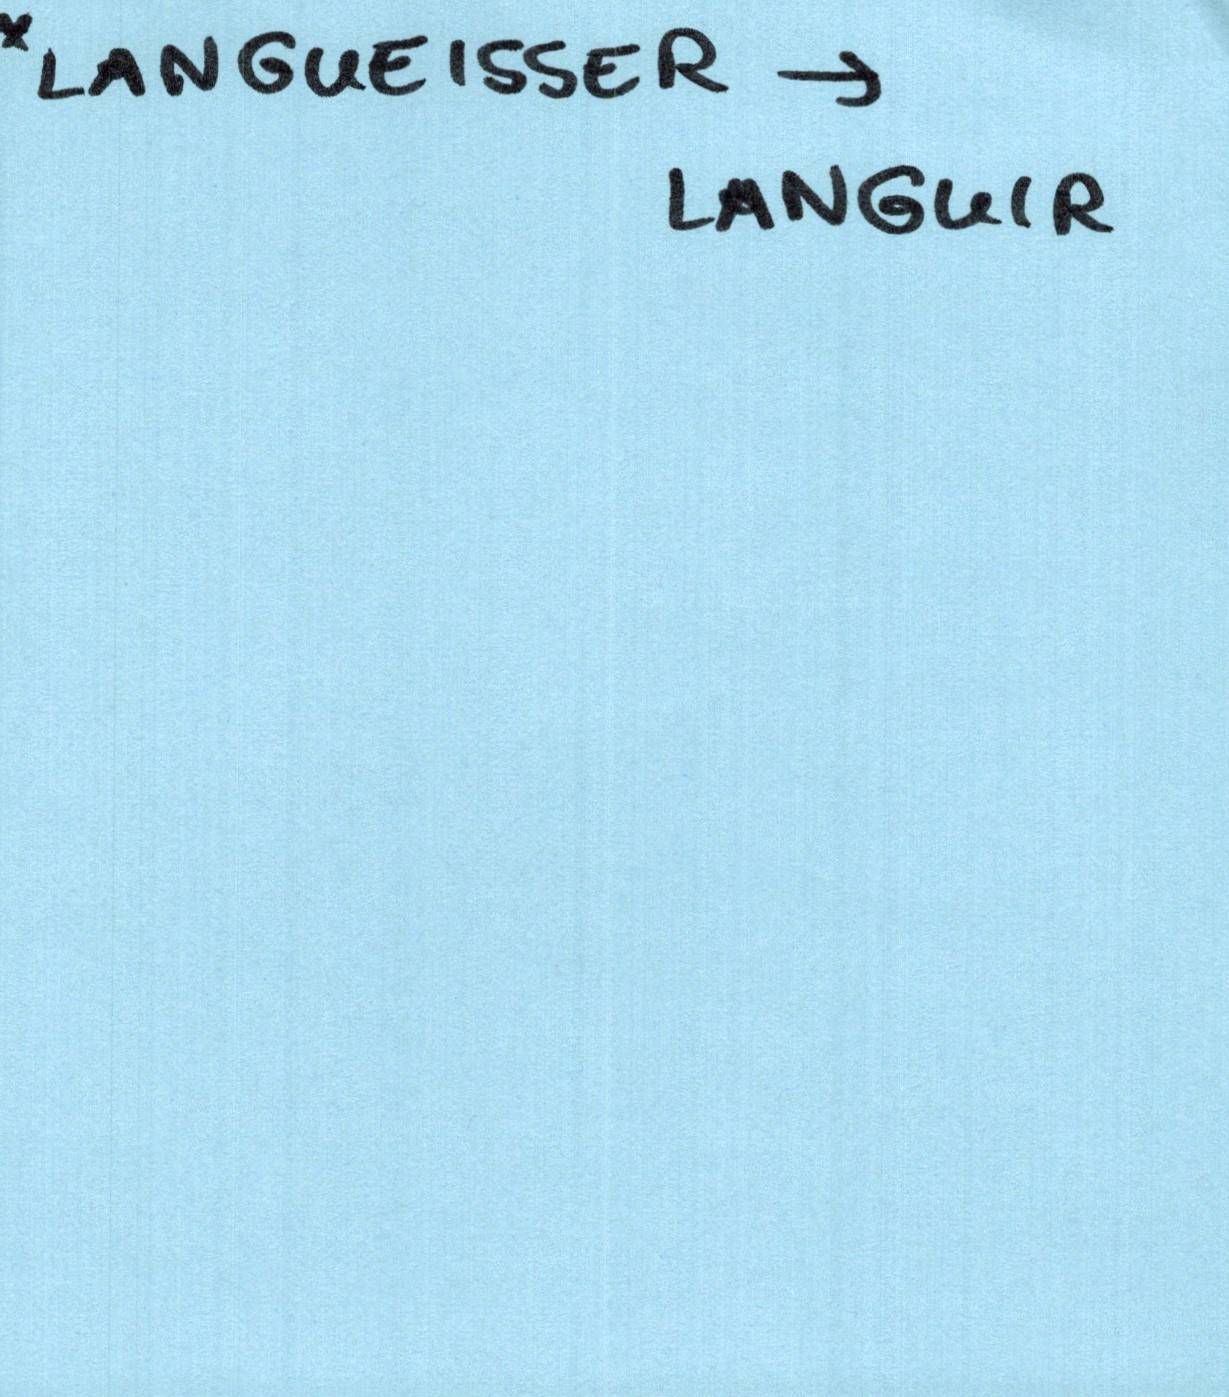 *LANGUEISSER →
LANGUIR